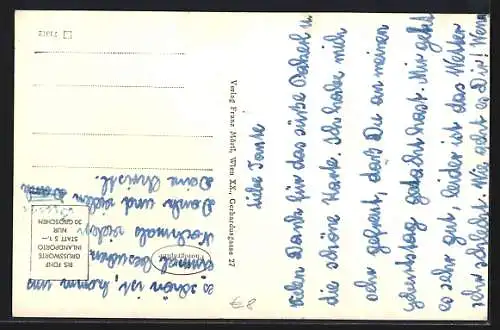 Liebe Tante
Vielen Dank für das süße Packerl u.
die schöne Karte. Ich habe mich
sehr gefreut, daß Du an meinen
Geburtstag gedacht hast. Mir geht
es sehr gut, leider ist das Wetter
sehr schlecht. Wie geht es Dir! Wenn
es schön ist, komm uns
einmal besuchen.
Nochmals vielen
Dank und vielen
Deine Christl.
Verlag Franz Mörtl, Wien XX., Gerhardusgasse 27
BIS FÜNF
GRUSSWORTE
INLANDPORTO
STATT S 1.—
NUR
30 GROSCHEN
87